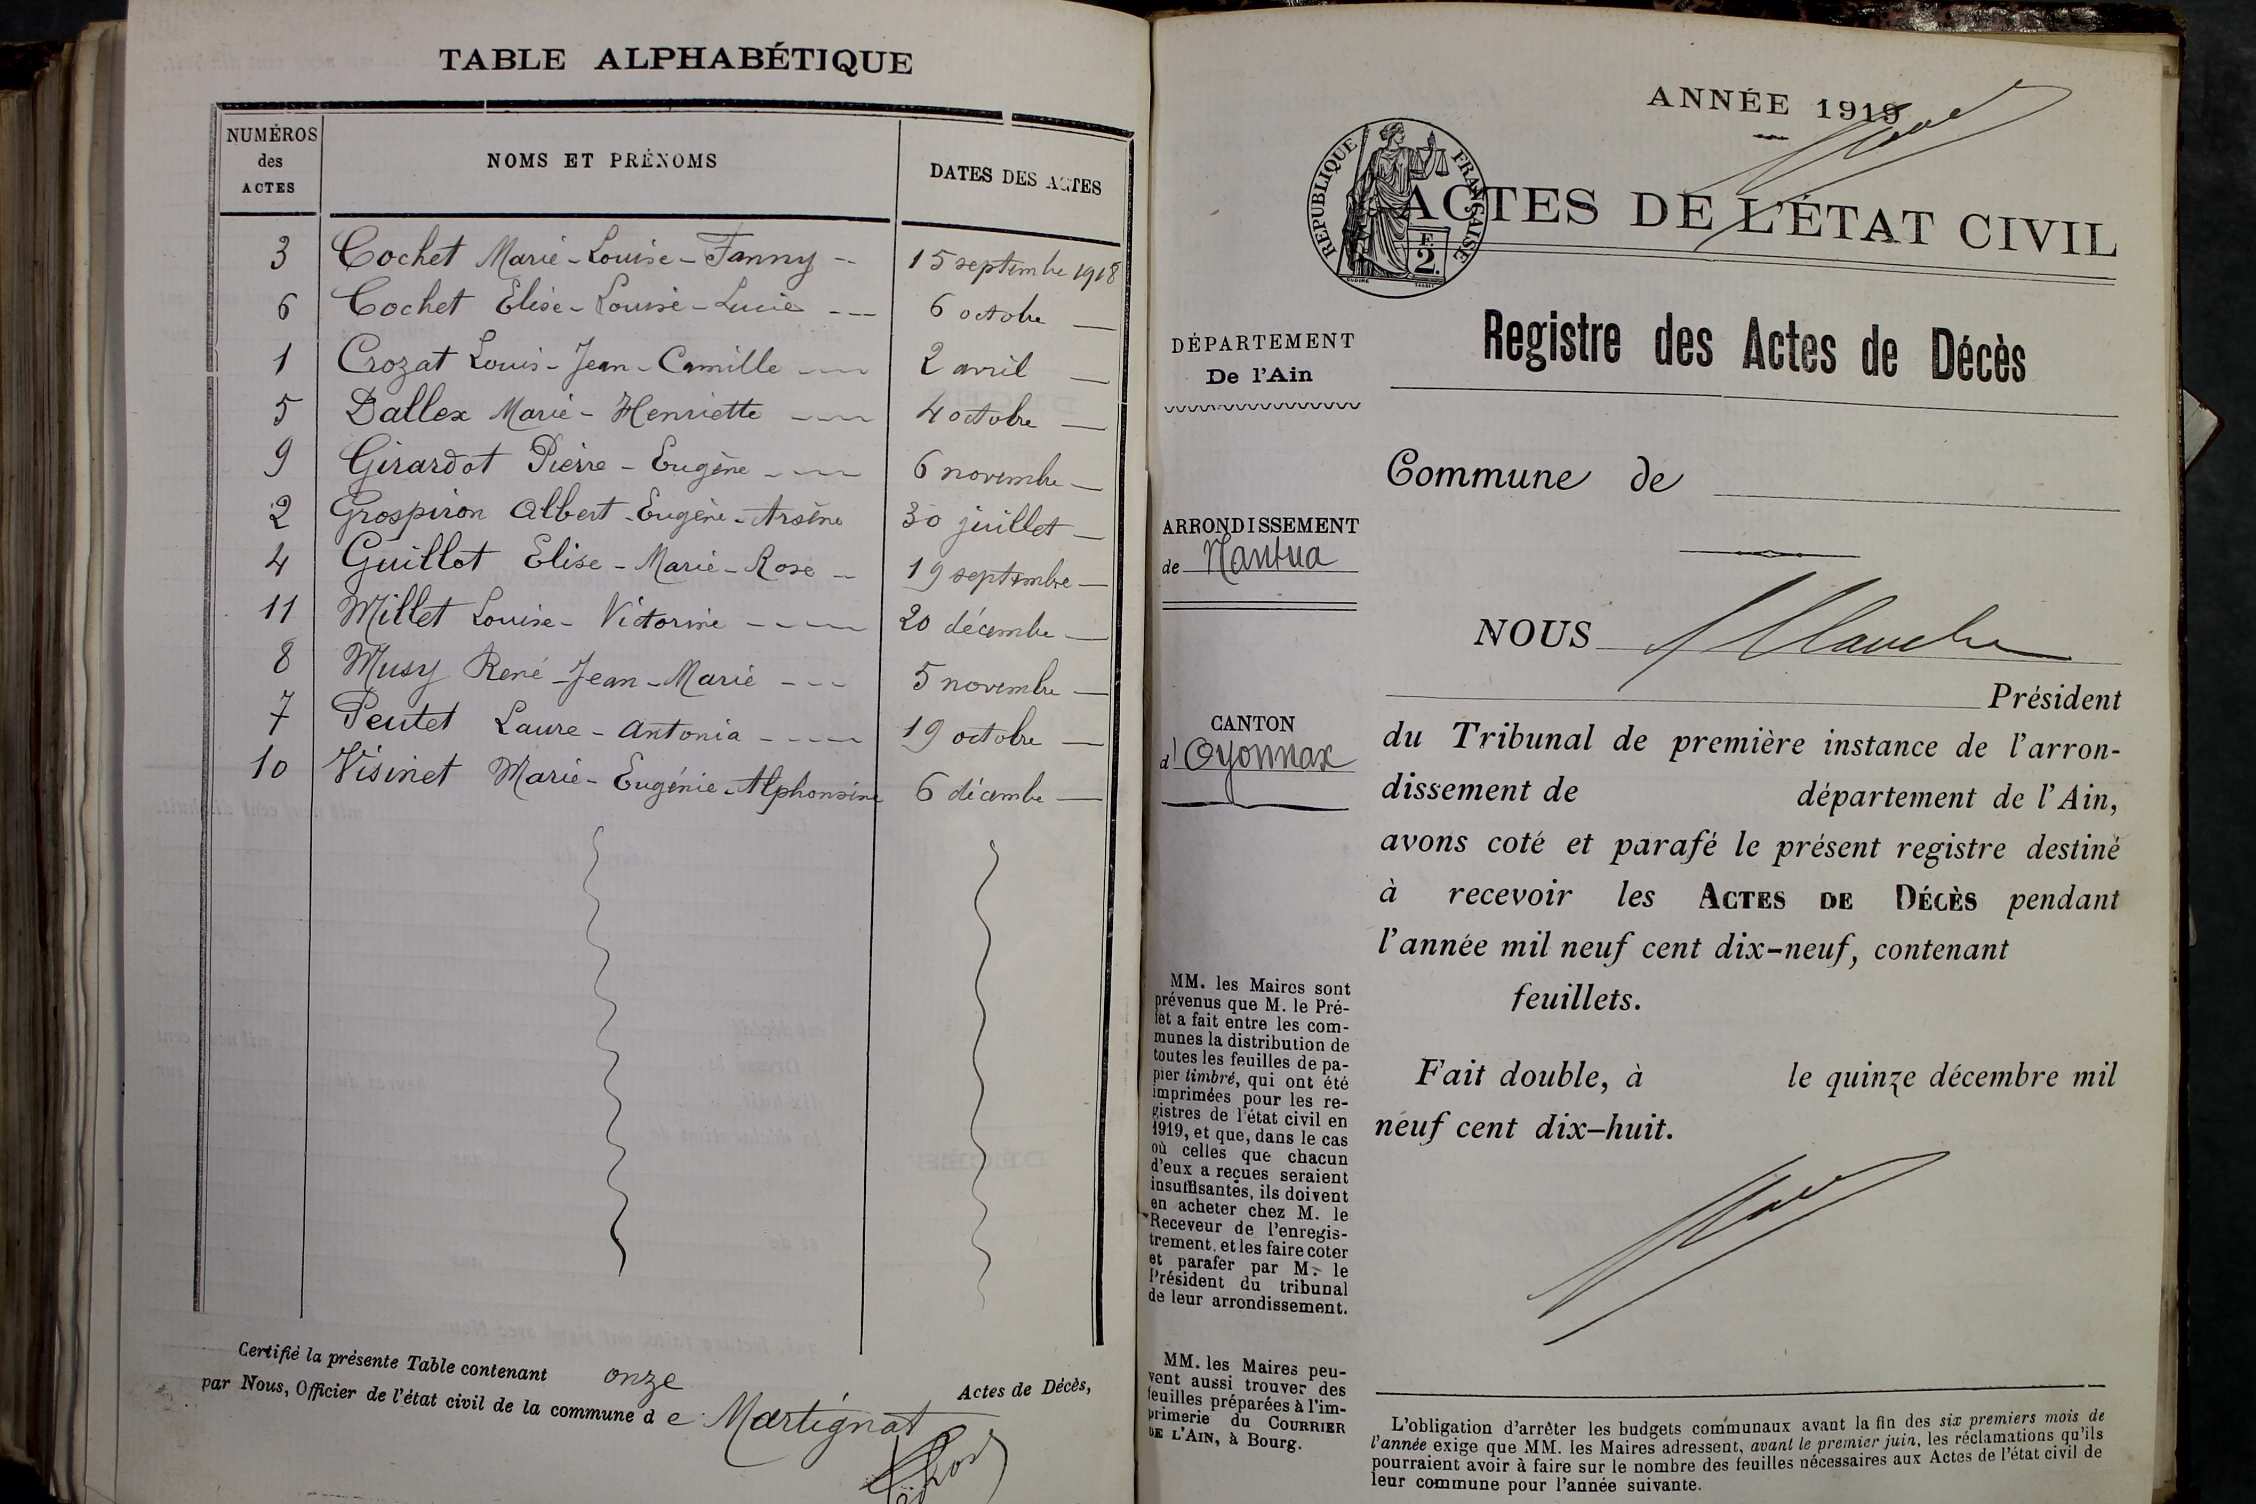 TABLE ALPHABÉTIQUE
NUMÉROS des ACTES
NOMS ET PRÉNOMS
DATES DES ACTES
3 Cochet Marie-Louise-Fanny 15 septembre 1918
6 Cochet Elise-Louise-Lucie 6 octobre
1 Crozat Louis-Jean-Camille 2 avril
5 Dallex Marie-Henriette 4 octobre
9 Girardot Pierre-Eugène 6 novembre
2 Grospiron Albert-Eugène-Arsène 30 juillet
4 Guillot Elise-Marie-Rose 19 septembre
11 Millet Louise-Victorine 20 décembre
8 Musy René-Jean-Marie 5 novembre
7 Peutet Laure-Antonia 19 octobre
10 Visinet Marie-Eugénie-Alphonsine 6 décembre
Certifié la présente Table contenant onze Actes de Décès,
par Nous, Officier de l'état civil de la commune de Martignat
ANNÉE 1919
RÉPUBLIQUE FRANÇAISE
F. 2.
ACTES DE L'ÉTAT CIVIL
Registre des Actes de Décès
DÉPARTEMENT
De l'Ain
Commune de
ARRONDISSEMENT
de Nantua
NOUS
Président
CANTON
d'Oyonnax
du Tribunal de première instance de l'arron-
dissement de département de l'Ain,
avons coté et parafé le présent registre destiné
à recevoir les ACTES DE DÉCÈS pendant
l'année mil neuf cent dix-neuf, contenant
feuillets.
Fait double, à le quinze décembre mil
neuf cent dix-huit.
MM. les Maires sont
prévenus que M. le Pré-
fet a fait entre les com-
munes la distribution de
toutes les feuilles de pa-
pier timbré, qui ont été
imprimées pour les re-
gistres de l'état civil en
1919, et que, dans le cas
où celles que chacun
d'eux a reçues seraient
insuffisantes, ils doivent
en acheter chez M. le
Receveur de l'enregis-
trement, et les faire coter
et parafer par M. le
Président du tribunal
de leur arrondissement.
MM. les Maires peu-
vent aussi trouver des
feuilles préparées à l'im-
primerie du COURRIER
DE L'AIN, à Bourg.
L'obligation d'arrêter les budgets communaux avant la fin des six premiers mois de
l'année exige que MM. les Maires adressent, avant le premier juin, les réclamations qu'ils
pourraient avoir à faire sur le nombre des feuilles nécessaires aux Actes de l'état civil de
leur commune pour l'année suivante.